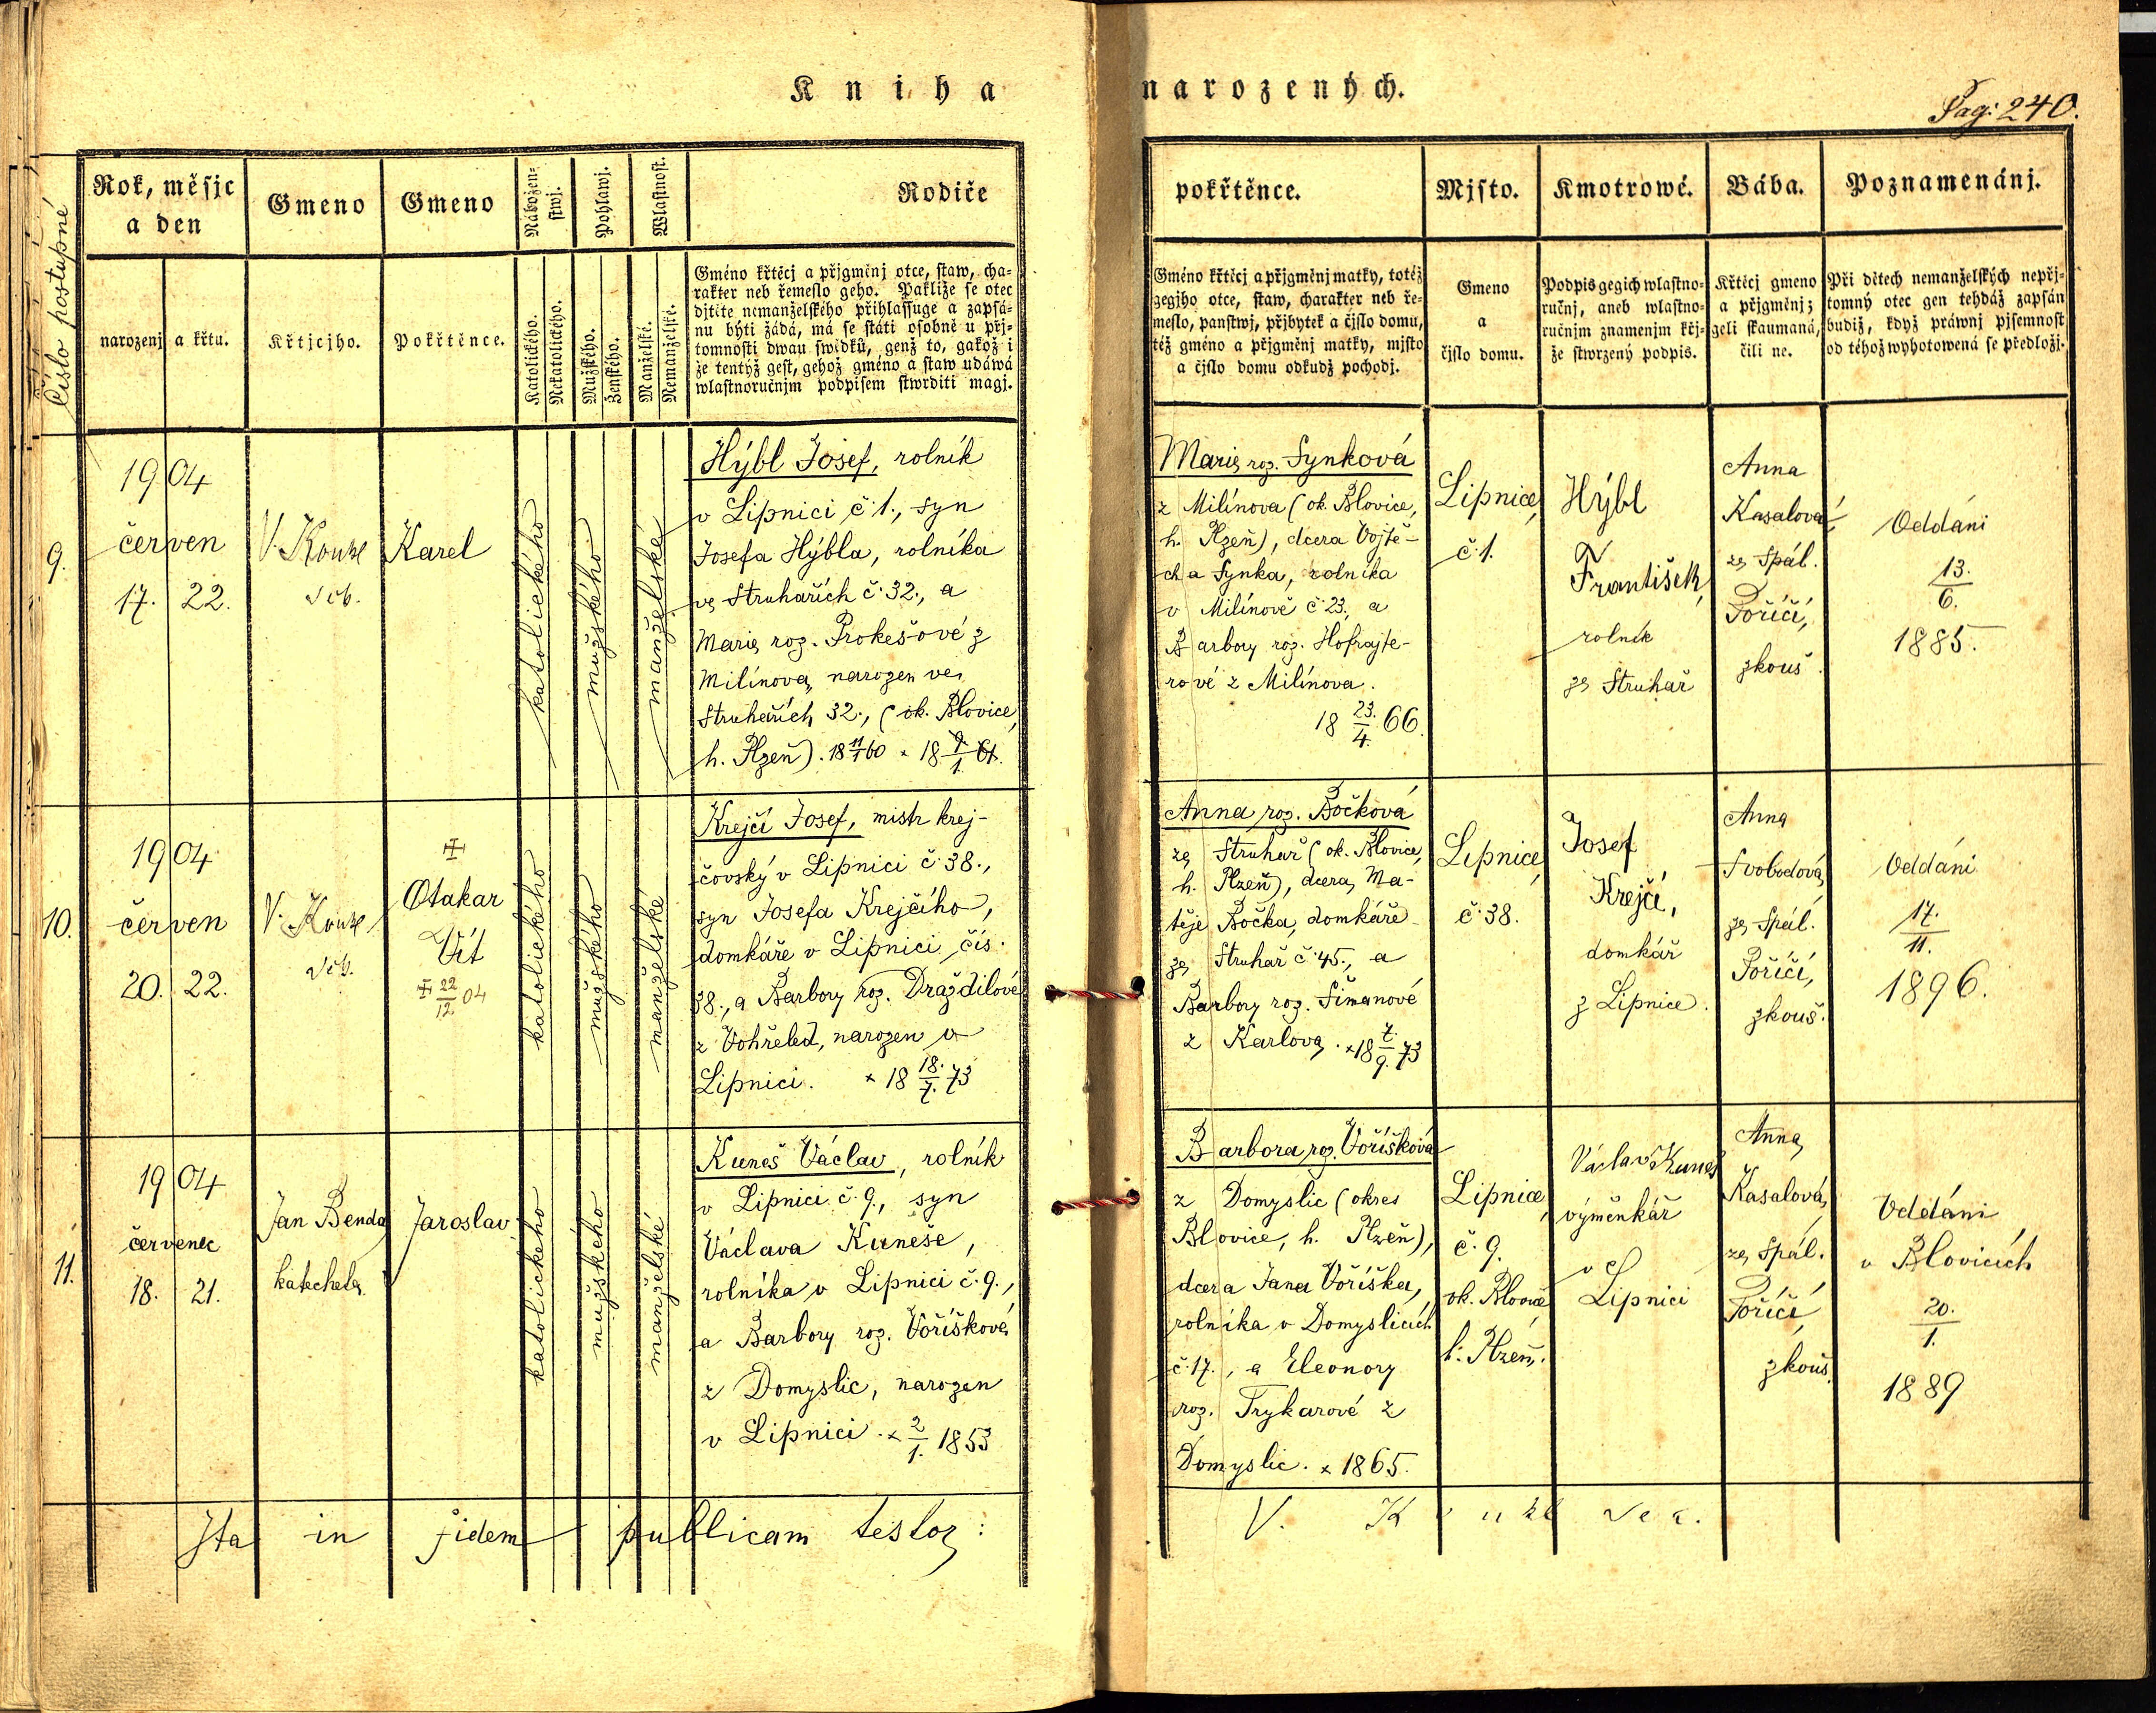 Kniha narozených.
Pag: 240.
Číslo postupné
Rok, měsjc
a den
narozenj
a křtu.
Gmeno
Křtjcjho.
Gmeno
Pokřtěnce.
Nábožen-
stwj.
Katolického.
Nekatolického.
Pohlawj.
Mužského.
Ženského.
Wlastnost.
Manželské.
Nemanželské.
Rodiče
Gméno křtěcj a přjgměnj otce, staw, cha-
rakter neb řemeslo geho. Pakliže se otec
djtěte nemanželského přihlassuge a zapsá-
nu býti žádá, má se státi osobně u přj-
tomnosti dwau swědků, genž to, gakož i
že tentýž gest, gehož gméno a staw udáwá
wlastnoručnjm podpisem stwrditi magj.
pokřtěnce.
Gméno křtěcj a přjgměnj matky, totéž
gegjho otce, staw, charakter neb ře-
meslo, panstwj, přjbytek a čjslo domu,
též gméno a přjgměnj matky, mjsto
a čjslo domu odkudž pocházj.
Mjsto.
Gmeno
a
čjslo domu.
Kmotrowé.
Podpis gegich wlastno-
ručnj, aneb wlastno-
ručnjm znamenjm křj-
že stwrzený podpis.
Bába.
Křtěcj gmeno
a přjgměnj;
geli skaumaná,
čili ne.
Poznamenánj.
Při dětech nemanželských nepřj-
tomný otec gen tehdáž zapsán
budiž, když práwnj pjsemnost
od téhož wyhotowená se předložj.
9.
1904
červen
17. 22.
Karel
katolického
mužského
manželské
Hýbl Josef, rolník
v Lipnici č. 1., syn
Josefa Hýbla, rolníka
ve Struhařích č. 32., a
Marie roz. Prokešové z
Milínova, narozen ve
Struhařích 32., (ok. Blovice,
h. Plzeň). 18 11/1 60 × 18 9/1. 61.
Marie roz. Synková
z Milínova (ok. Blovice,
h. Plzeň), dcera Vojtě-
cha Synka, rolníka
v Milínově č. 23., a
Barbory roz. Hofrajte-
rové z Milínova.
18 23./4. 66.
Lipnice,
č. 1.
Hýbl
František,
rolník
ze Struhař
Anna
Kasalová,
ze Spál.
Poříčí,
zkouš.
Oddáni
13.
6.
1885.
10.
1904
červen
20. 22.
Otakar
Vít
22/12 04
katolického
mužského
manželské
Krejčí Josef, mistr krej-
čovský v Lipnici č. 38.,
syn Josefa Krejčího,
domkáře v Lipnici čís.
38., a Barbory roz. Draždilové
z Vohřeled, narozen v
Lipnici. × 18 18./7. 73
Anna roz. Bočková
ze Struhař (ok. Blovice,
h. Plzeň), dcera Ma-
těje Bočka, domkáře
ze Struhař č. 45., a
Barbory roz. Šimanové
z Karlova. × 18 7./9. 73
Lipnice,
č. 38.
Josef
Krejčí,
domkář
z Lipnice.
Anna
Svobodová,
ze Spál.
Poříčí,
zkouš.
Oddáni
17.
11.
1896.
11.
1904
červenec
18. 21.
Jan Benda
katecheta.
Jaroslav
katolického
mužského
manželské
Kuneš Václav, rolník
v Lipnici č. 9., syn
Václava Kuneše,
rolníka v Lipnici č. 9.,
a Barbory roz. Voříškové
z Domyslic, narozen
v Lipnici. × 2/1. 1853
Barbora roz. Voříšková
z Domyslic (okres
Blovice, h. Plzeň),
dcera Jana Voříška,
rolníka v Domyslicích
č. 17., a Eleonory
roz. Trykarové z
Domyslic. × 1865.
Lipnice,
č. 9.
ok. Blovice
h. Plzeň.
Václav Kuneš
výměnkář
v
Lipnici
Anna
Kasalová,
ze Spál.
Poříčí,
zkouš.
Oddáni
v Blovicích
20.
1.
1889
Ita in fidem publicam testor: